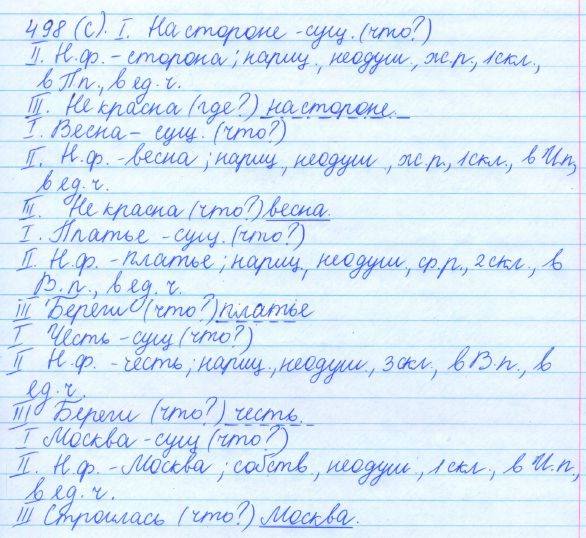 498 (с). I. На стороне - сущ. (что?)
II. Н.ф. - сторона; нариц., неодуш., ж.р., 1 скл.,
в П.п., в ед.ч.
III. Не красна (где?) на стороне.
I. Весна - сущ. (что?)
II. Н.ф. - весна; нариц., неодуш., ж.р., 1 скл., в И.п.,
в ед.ч.
III. Не красна (что?) весна.
I. Платье - сущ. (что?)
II. Н.ф. - платье; нариц., неодуш., ср.р., 2 скл., в
В.п., в ед.ч.
III Береги (что?) платье
I Честь - сущ (что?)
II Н.ф. - честь; нариц., неодуш., 3 скл., в В.п., в
ед.ч.
III Береги (что?) честь.
I Москва - сущ (что?)
II. Н.ф. - Москва; собств., неодуш., 1 скл., в И.п.,
в ед.ч.
III Строилась (что?) Москва.